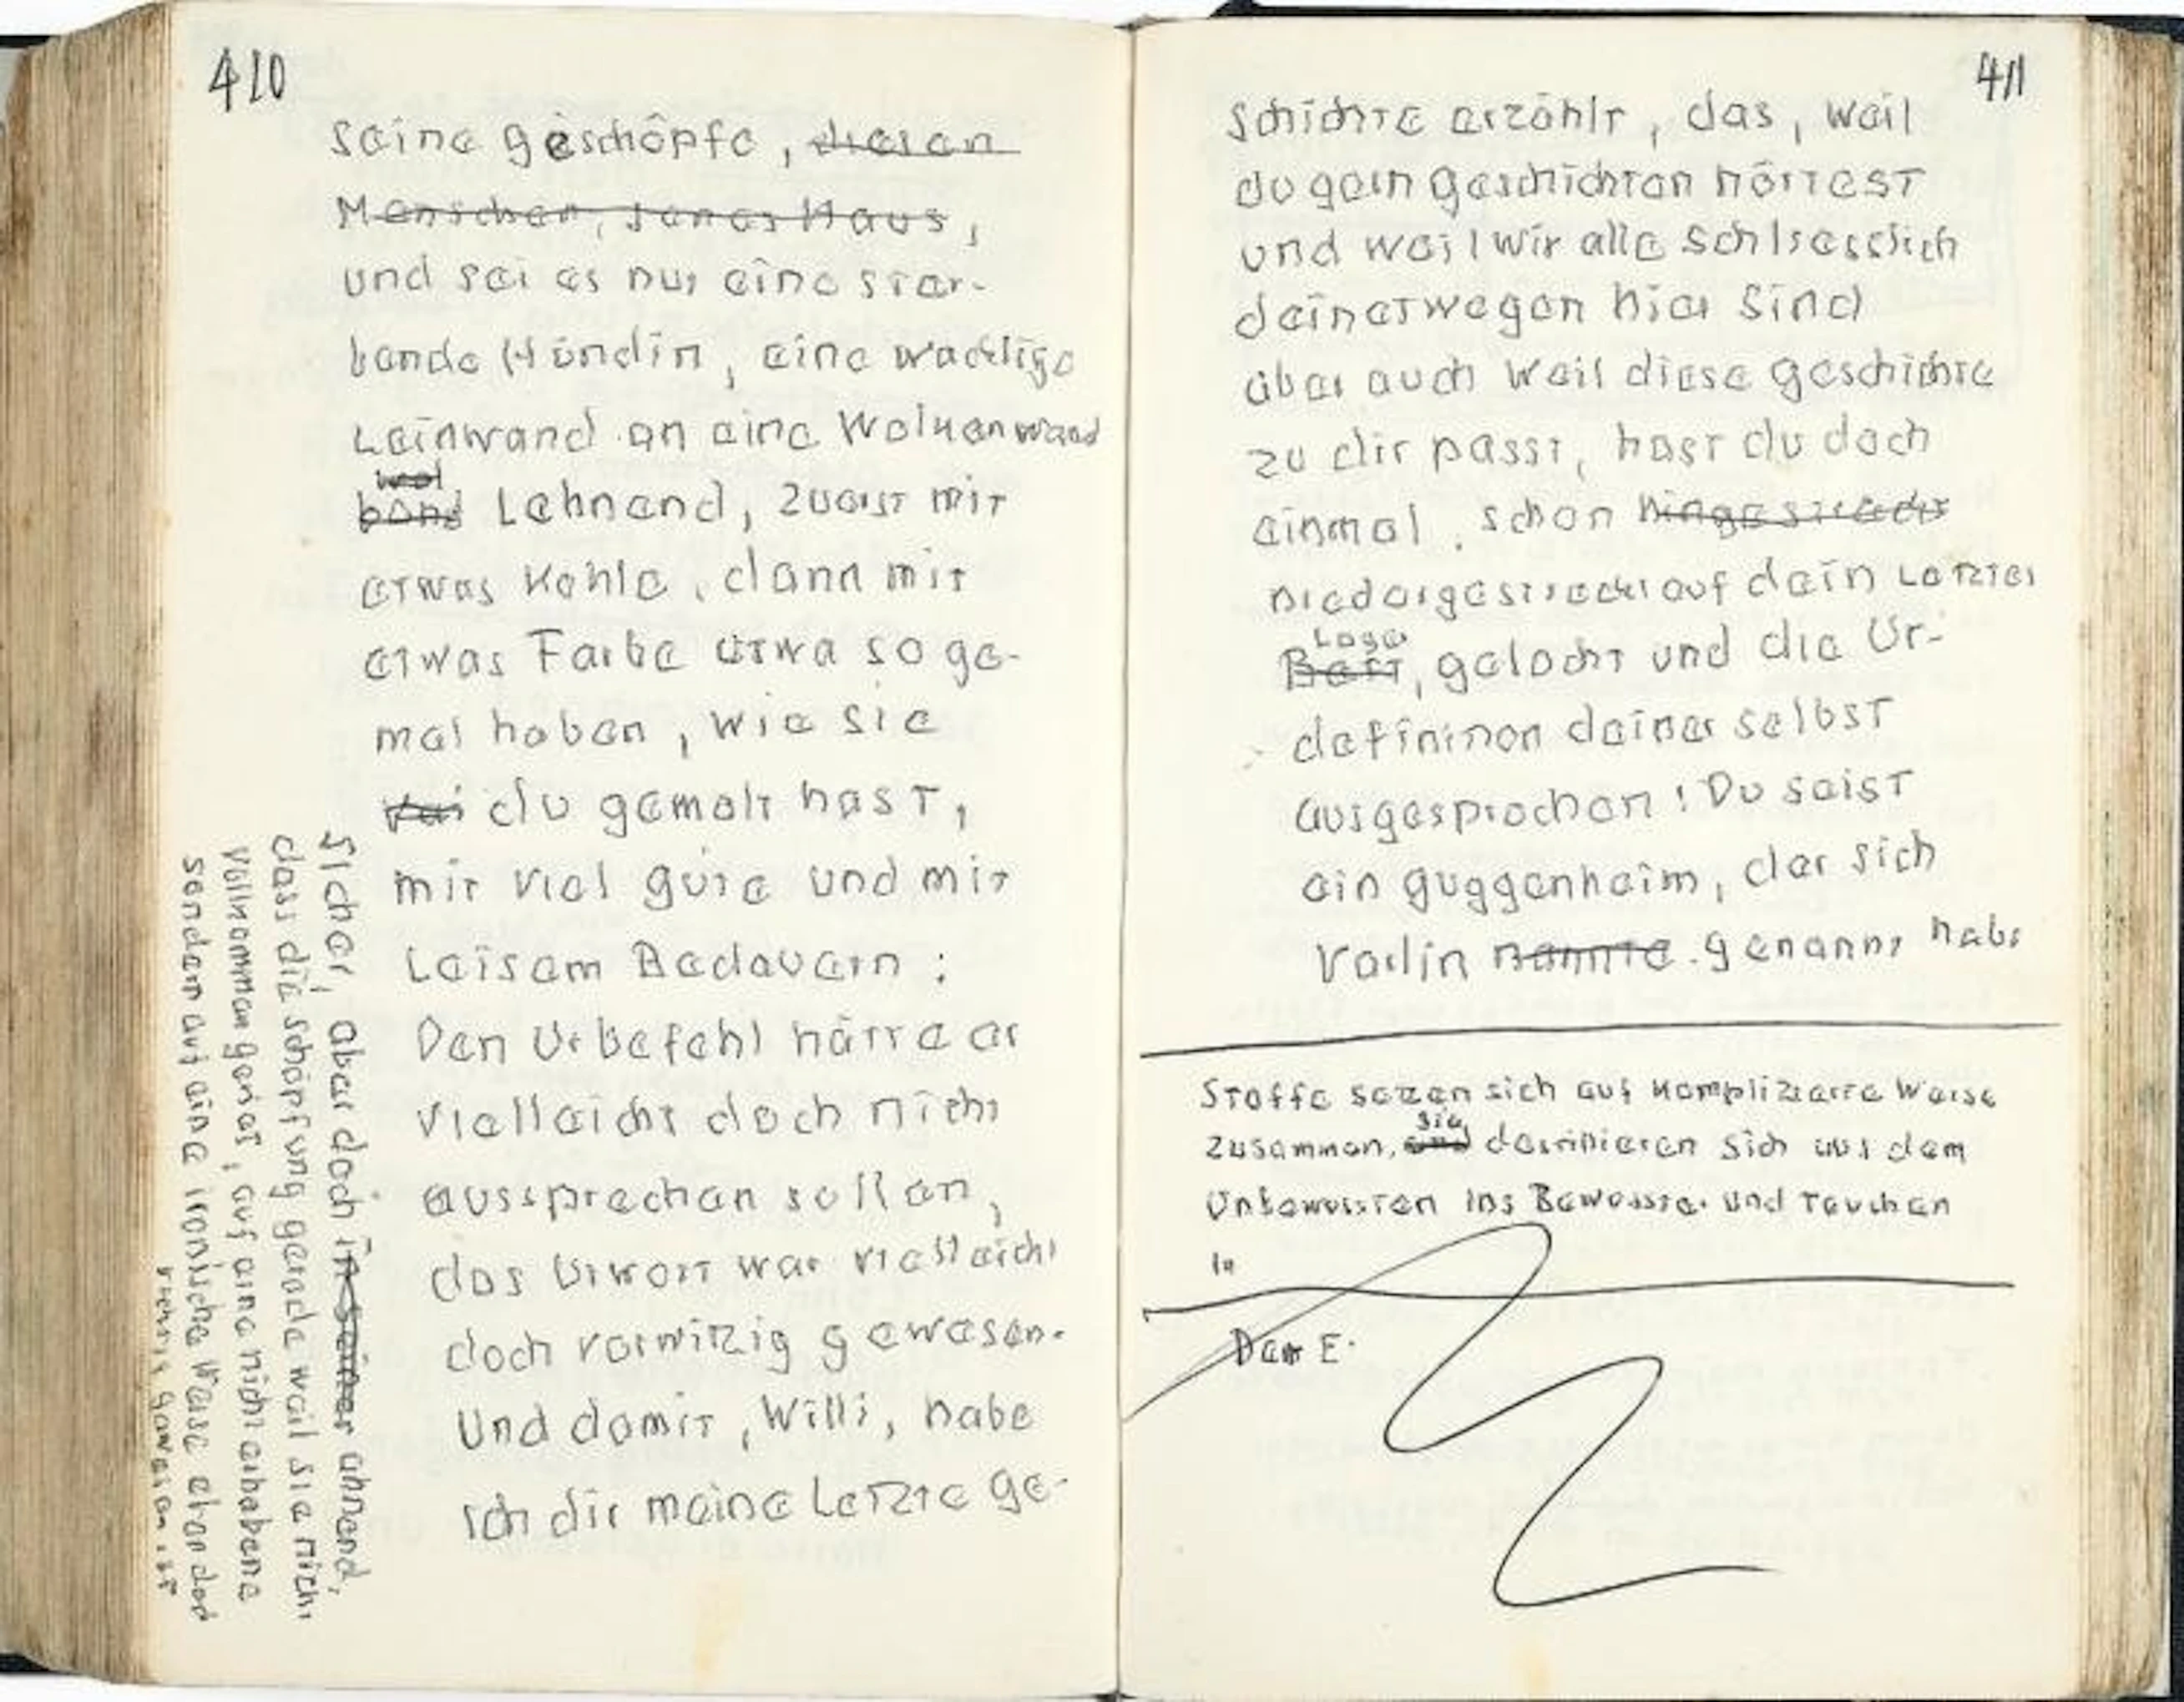 410
seine geschöpfe, diesen
Menschen, jenes Haus,
und sei es nur eine ster-
bende Hündin, eine wacklige
Leinwand an eine Wolkenwand
band Lehnend, zuerst mit
etwas Kohle, dann mit
etwas Farbe etwa so ge-
mal haben, wie sie
du gemalt hast,
mit viel güte und mit
Leisem Bedauern:
Den Urbefehl hätte er
vielleicht doch nicht
aussprechen sollen,
das Urwort war vielleicht
doch vorwitzig gewesen.
Und damit, Willi, habe
ich dir meine Letzte ge-
sicher, aber doch in seiner ahnend,
dass die schöpfung gerade weil sie nicht
vollkommen geriet, auf eine nicht erhabene
sondern auf eine ironische Weise eben doch
gewesen ist
411
schichte erzählt, das, weil
du gern geschichten hörtest
und weil wir alle schlsesslich
deinetwegen hier sind
aber auch weil diese geschichte
zu dir passt, hast du doch
einmal, schon hingestreckt
niedergestreckt auf dein Letztes
Lager
Bett, gelacht und die Ur-
definition deiner selbst
ausgesprochen! Du seist
ein guggenheim, der sich
Varlin nannte. genannt habe
Stoffe setzen sich auf komplizierte Weise
sie
zusammen, und destillieren sich aus dem
Unbewussten ins Bewusste. und tauchen
in
E.